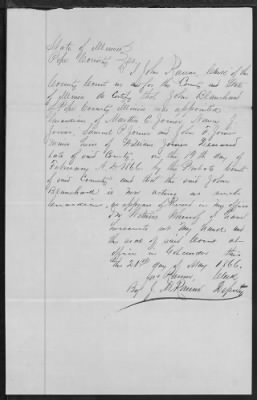 State of Illinois
Pope County
I John Raum, Clerk of the
County Court in and for the County and State
of Illinois do certify that John Blanchard
of Pope County Illinois was appointed
Guardian of Martha C. Joiner, Nancy J.
Joiner, Samuel P Joiner and John T Joiner
minor heirs of Joiner deceased
late of said County, on the 19th day of
February A.D. 1866 by the Probate Court
of said County and that the said John
Blanchard is now acting as such
Guardian, as appears of Record in my office
In Witness Whereof I have
hereunto set my hand and
the seal of said Court at
office in Golconda this
the 21st day of May 1866.
Clerk
By J. Deputy